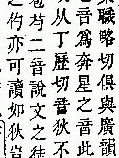 職略切俱與廣韻
音爲奔星之音此
从丁歷切音狄不
芍二音說文之徒
之彴亦可讀如狄豈